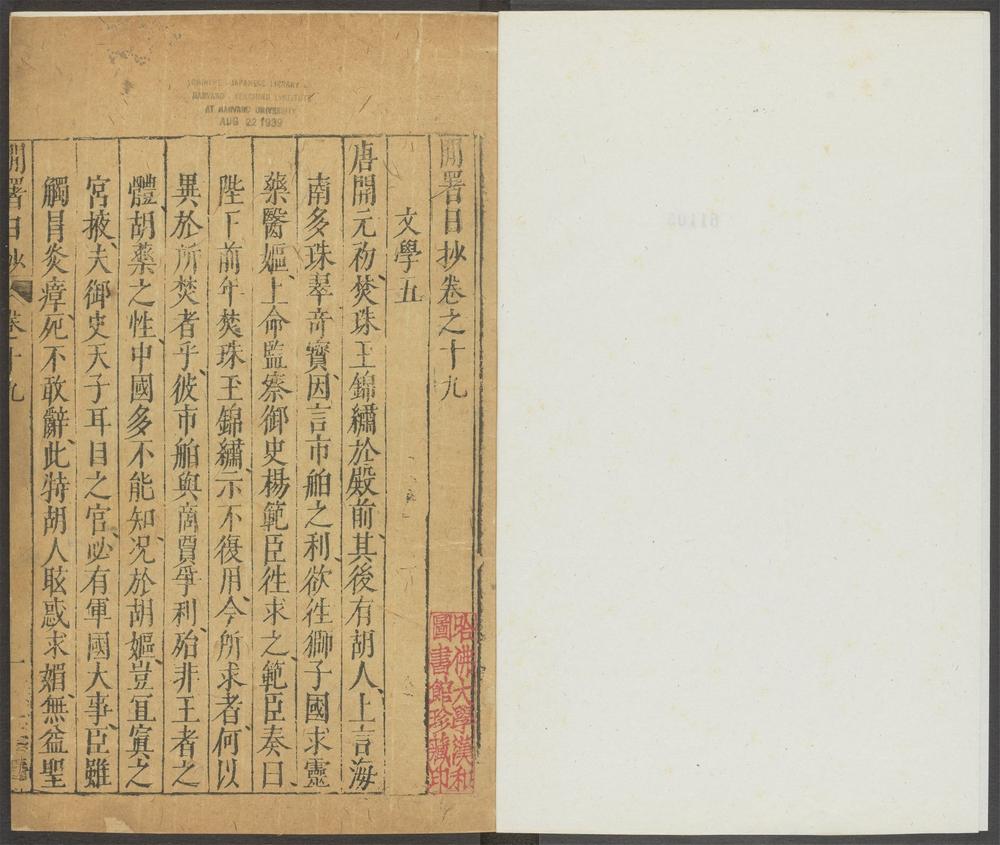 閒署日抄卷之十九
文學五
唐開元初、焚珠玉錦繡於殿前、其後有胡人、上言海
南多珠翠奇寶、因言市舶之利、欲徃獅子國求靈
藥醫嫗、上命監察御史楊範臣徃求之、範臣奏曰、
陛下前年焚珠玉錦繡、示不復用、今所求者、何以
異於所焚者乎、彼市舶與商賈爭利、殆非王者之
體、胡藥之性、中國多不能知、况於胡嫗、豈宜寘之
宮掖、夫御史天子耳目之官、必有軍國大事、臣雖
觸冒炎瘴、死不敢辭、此特胡人眩惑求媚、無益聖
閒署日抄 卷十九 一
哈佛大學漢和
圖書館珍藏印
CHINESE - JAPANESE LIBRARY
HARVARD - YENCHING INSTITUTE
AT HARVARD UNIVERSITY
AUG 22 1939